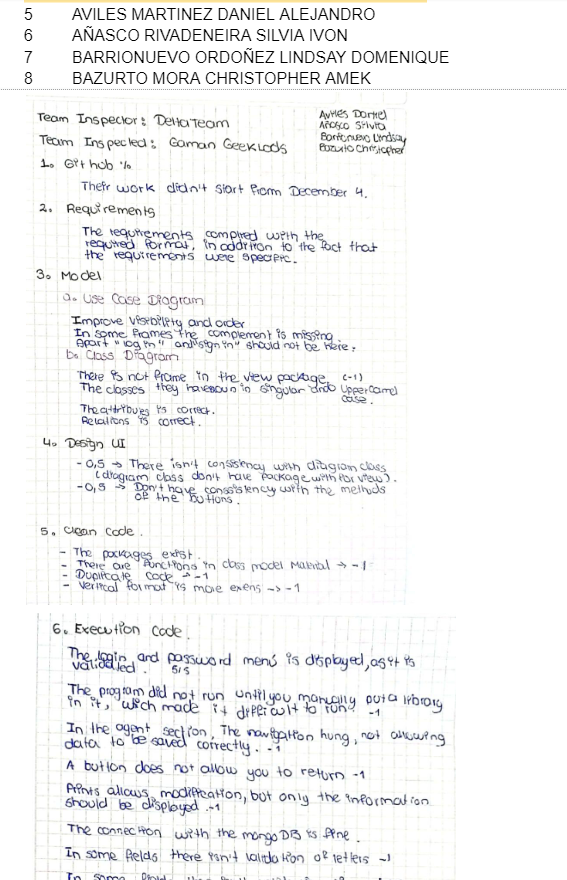 5 AVILES MARTINEZ DANIEL ALEJANDRO
6 AÑASCO RIVADENEIRA SILVIA IVON
7 BARRIONUEVO ORDOÑEZ LINDSAY DOMENIQUE
8 BAZURTO MORA CHRISTOPHER AMEK
Team Inspector: DeltaTeam
Avilés Daniel
Añasco Silvia
Barrionuevo Lindsay
Bazurto Christopher
Team Inspected: Gaman GeekLods
1. Git hub %
Their work didn't start from December 4.
2. Requirements
The requirements complied with the
required format, in addition to the fact that
the requirements were specific.
3. Model
a. Use Case Diagram
Improve visibility and order
In some frames the complement is missing
Apart "log in" and "sign in" should not be here.
b. Class Diagram
There is not frame in the view package (-1)
The classes they have noun in singular and UpperCamel
case.
The attribues is correct.
Relations is correct.
4. Design UI
-0,5 → There isn't consistency with diagram class
(diagram class don't have package with for view).
-0,5 → Don't have consistency with the methods
of the buttons.
5. Clean Code.
- The packages exist.
- There are functions in class model Material → -1
- Duplicate code → -1
- Vertical format is more exens → -1
6. Execution Code.
The login and password menú is displayed, as it is
validated. 5/5
The program did not run until you manually put a library
in it, wich made it difficult to run. -1
In the agent section, The navigation hung, not allowing
data to be saved correctly. -1
A button does not allow you to return -1
Prints allows modification, but only the information
should be displayed -1
The connection with the mongo DB is fine.
In some fields there isn't validation of letters -1
In some